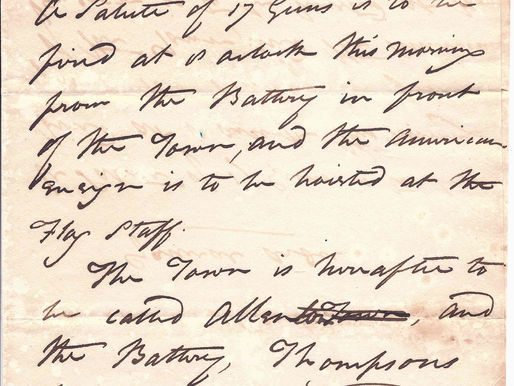 A Salute of 17 Guns is to be
fired at 8 oclock this morning
from the Battery in front
of the Town, and the American
ensign is to be hoisted at the
Flag Staff.
The Town is hereafter to
be called Allentown, and
the Battery, Thompsons